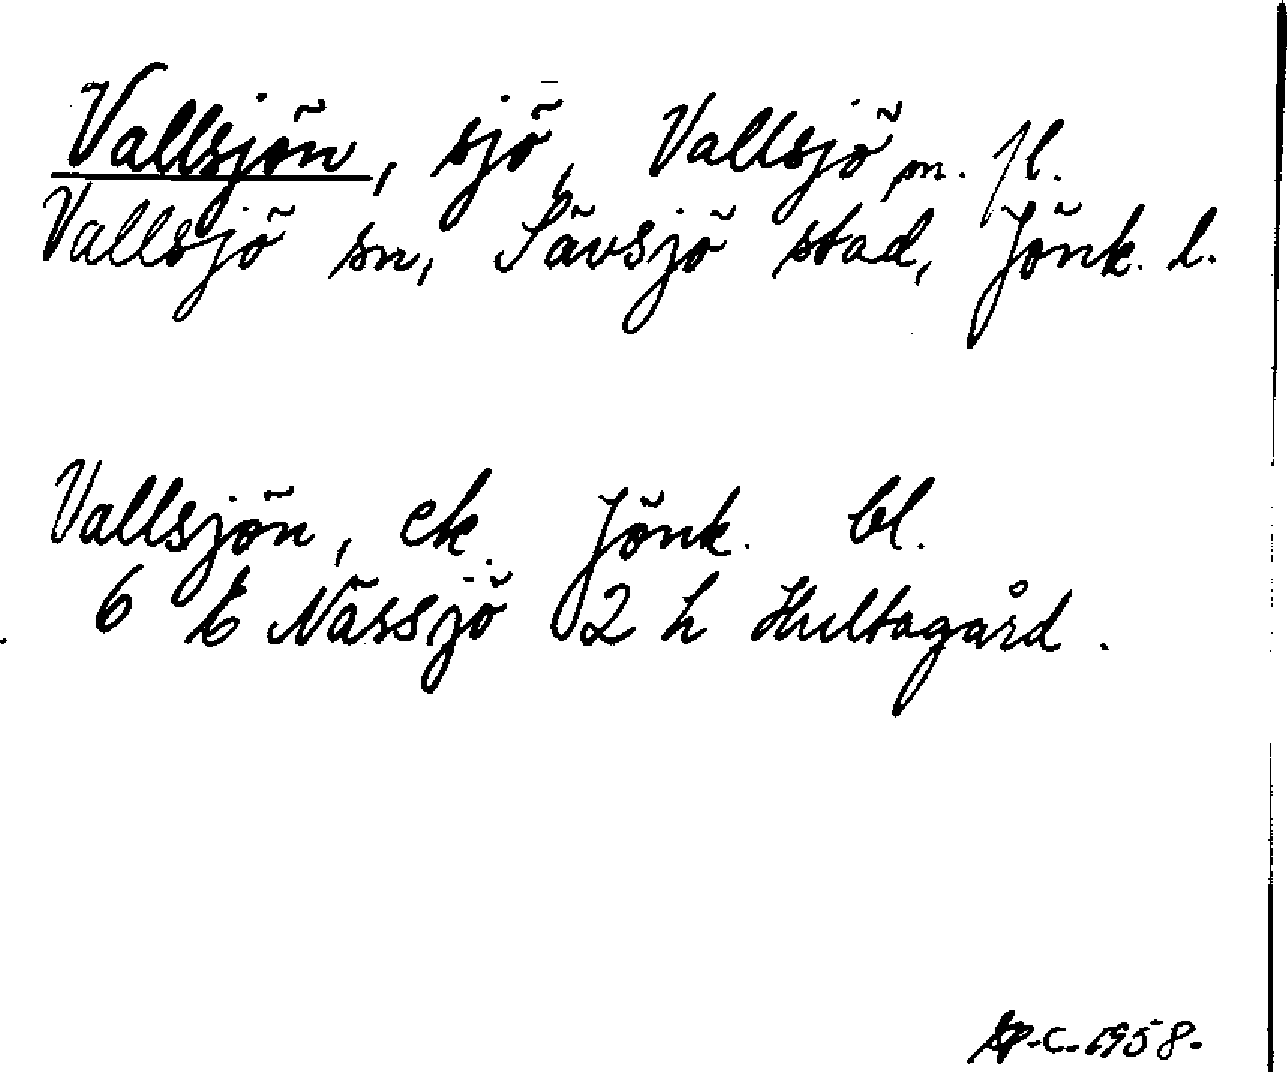 Vallsjön, sjö, Vallsjö m. fl.
Vallsjö sn, Sävsjö stad, Jönk. l.
Vallsjön, ek. Jönk. bl.
6 E Nässjö 2 h Hultagård.
1958.